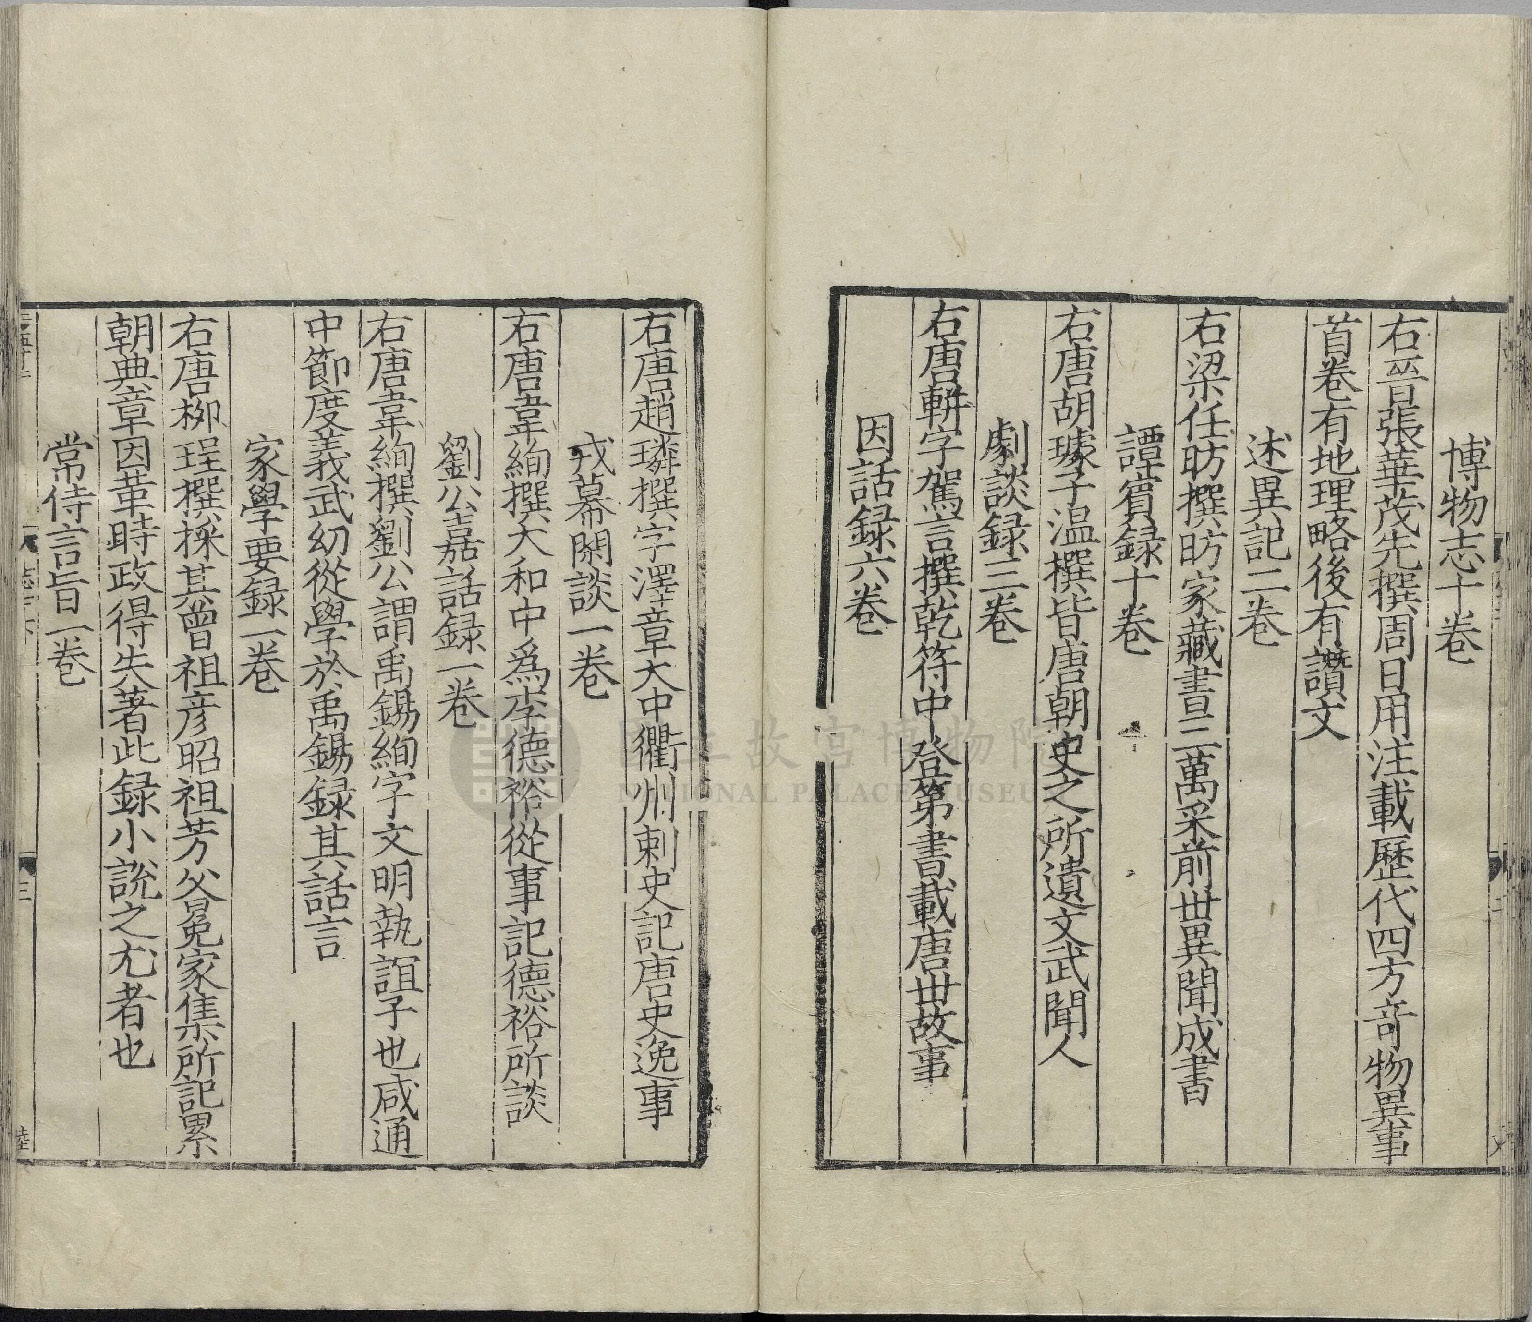 博物志十卷
右晉張華茂先撰周日用注載歷代四方竒物異事
首卷有地理略後有讚文
述異記二卷
右梁任昉撰昉家藏書三萬采前世異聞成書
譚賓録十卷
右唐胡璩子温撰皆唐朝史之所遺文武聞人
劇談録三卷
右唐軿字駕言撰乾符中登第書載唐世故事
因話録六卷
右唐趙璘撰字澤章大中衢州刺史記唐史逸事
戎幕閑談一卷
右唐韋絢撰大和中爲李德裕從事記德裕所談
劉公嘉話録一卷
右唐韋絢撰劉公謂禹錫絢字文明執誼子也咸通
中節度義武幼從學於禹錫録其話言
家學要録一卷
右唐柳珵撰採其曾祖彦昭祖芳父冕家集所記累
朝典章因革時政得失著此録小說之尤者也
常侍言旨一卷
三
國立故宮博物院
NATIONAL PALACE MUSEUM